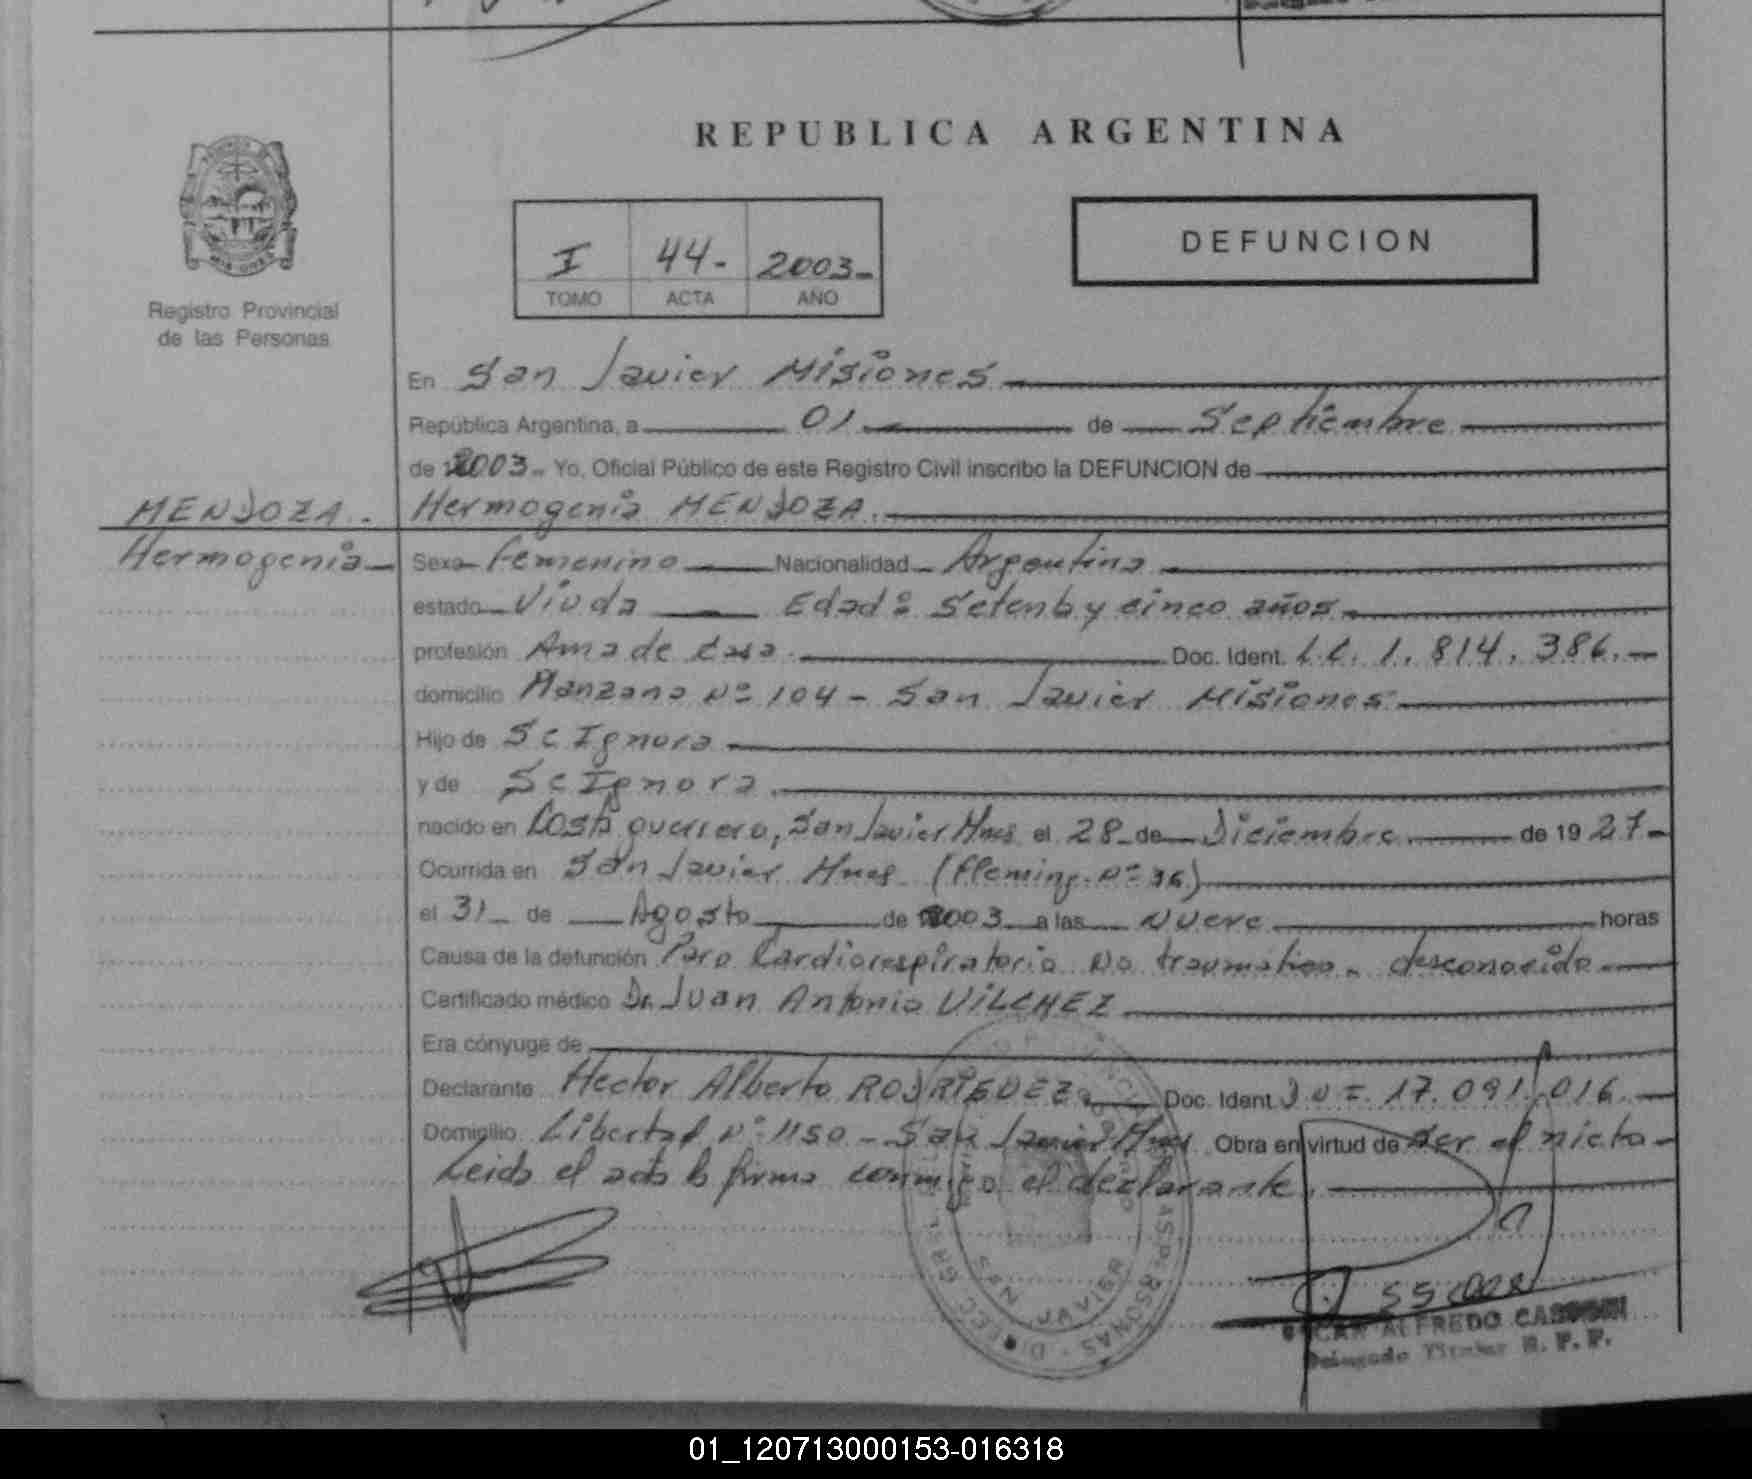 REPUBLICA ARGENTINA
DEFUNCION
I 44- 2003-
TOMO ACTA AÑO
Registro Provincial
de las Personas
En San Javier Misiones
República Argentina, a 01 de Septiembre
de 2003 Yo, Oficial Público de este Registro Civil inscribo la DEFUNCION de
MENDOZA. Hermogenia MENDOZA.
Hermogenia Sexo Femenino Nacionalidad Argentina
estado Viuda Edad: Setenta y cinco años
profesión Ama de Casa. Doc. Ident. L.C. 1.814.386.
domicilio Manzana Nº 104 - San Javier Misiones
Hijo de Se Ignora
y de Se Ignora
nacido en Costa guerrero, San Javier Mnes el 28 de Diciembre de 1927
Ocurrida en San Javier Mnes (Fleming Nº 36)
el 31 de Agosto de 2003 a las Nueve horas
Causa de la defunción Paro Cardiorespiratorio No traumatico - desconocido
Certificado médico Dr. Juan Antonio VILCHEZ
Era cónyuge de
Declarante Hector Alberto RODRIGUEZ Doc. Ident. 17.091.016
Domicilio Libertad Nº 1150 - San Javier Mnes Obra en virtud de ser el nieto
Leida el acta la firma conmigo el declarante.
SAN JAVIER
OSCAR ALFREDO
Delegado Titular R. P. P.
01_120713000153-016318